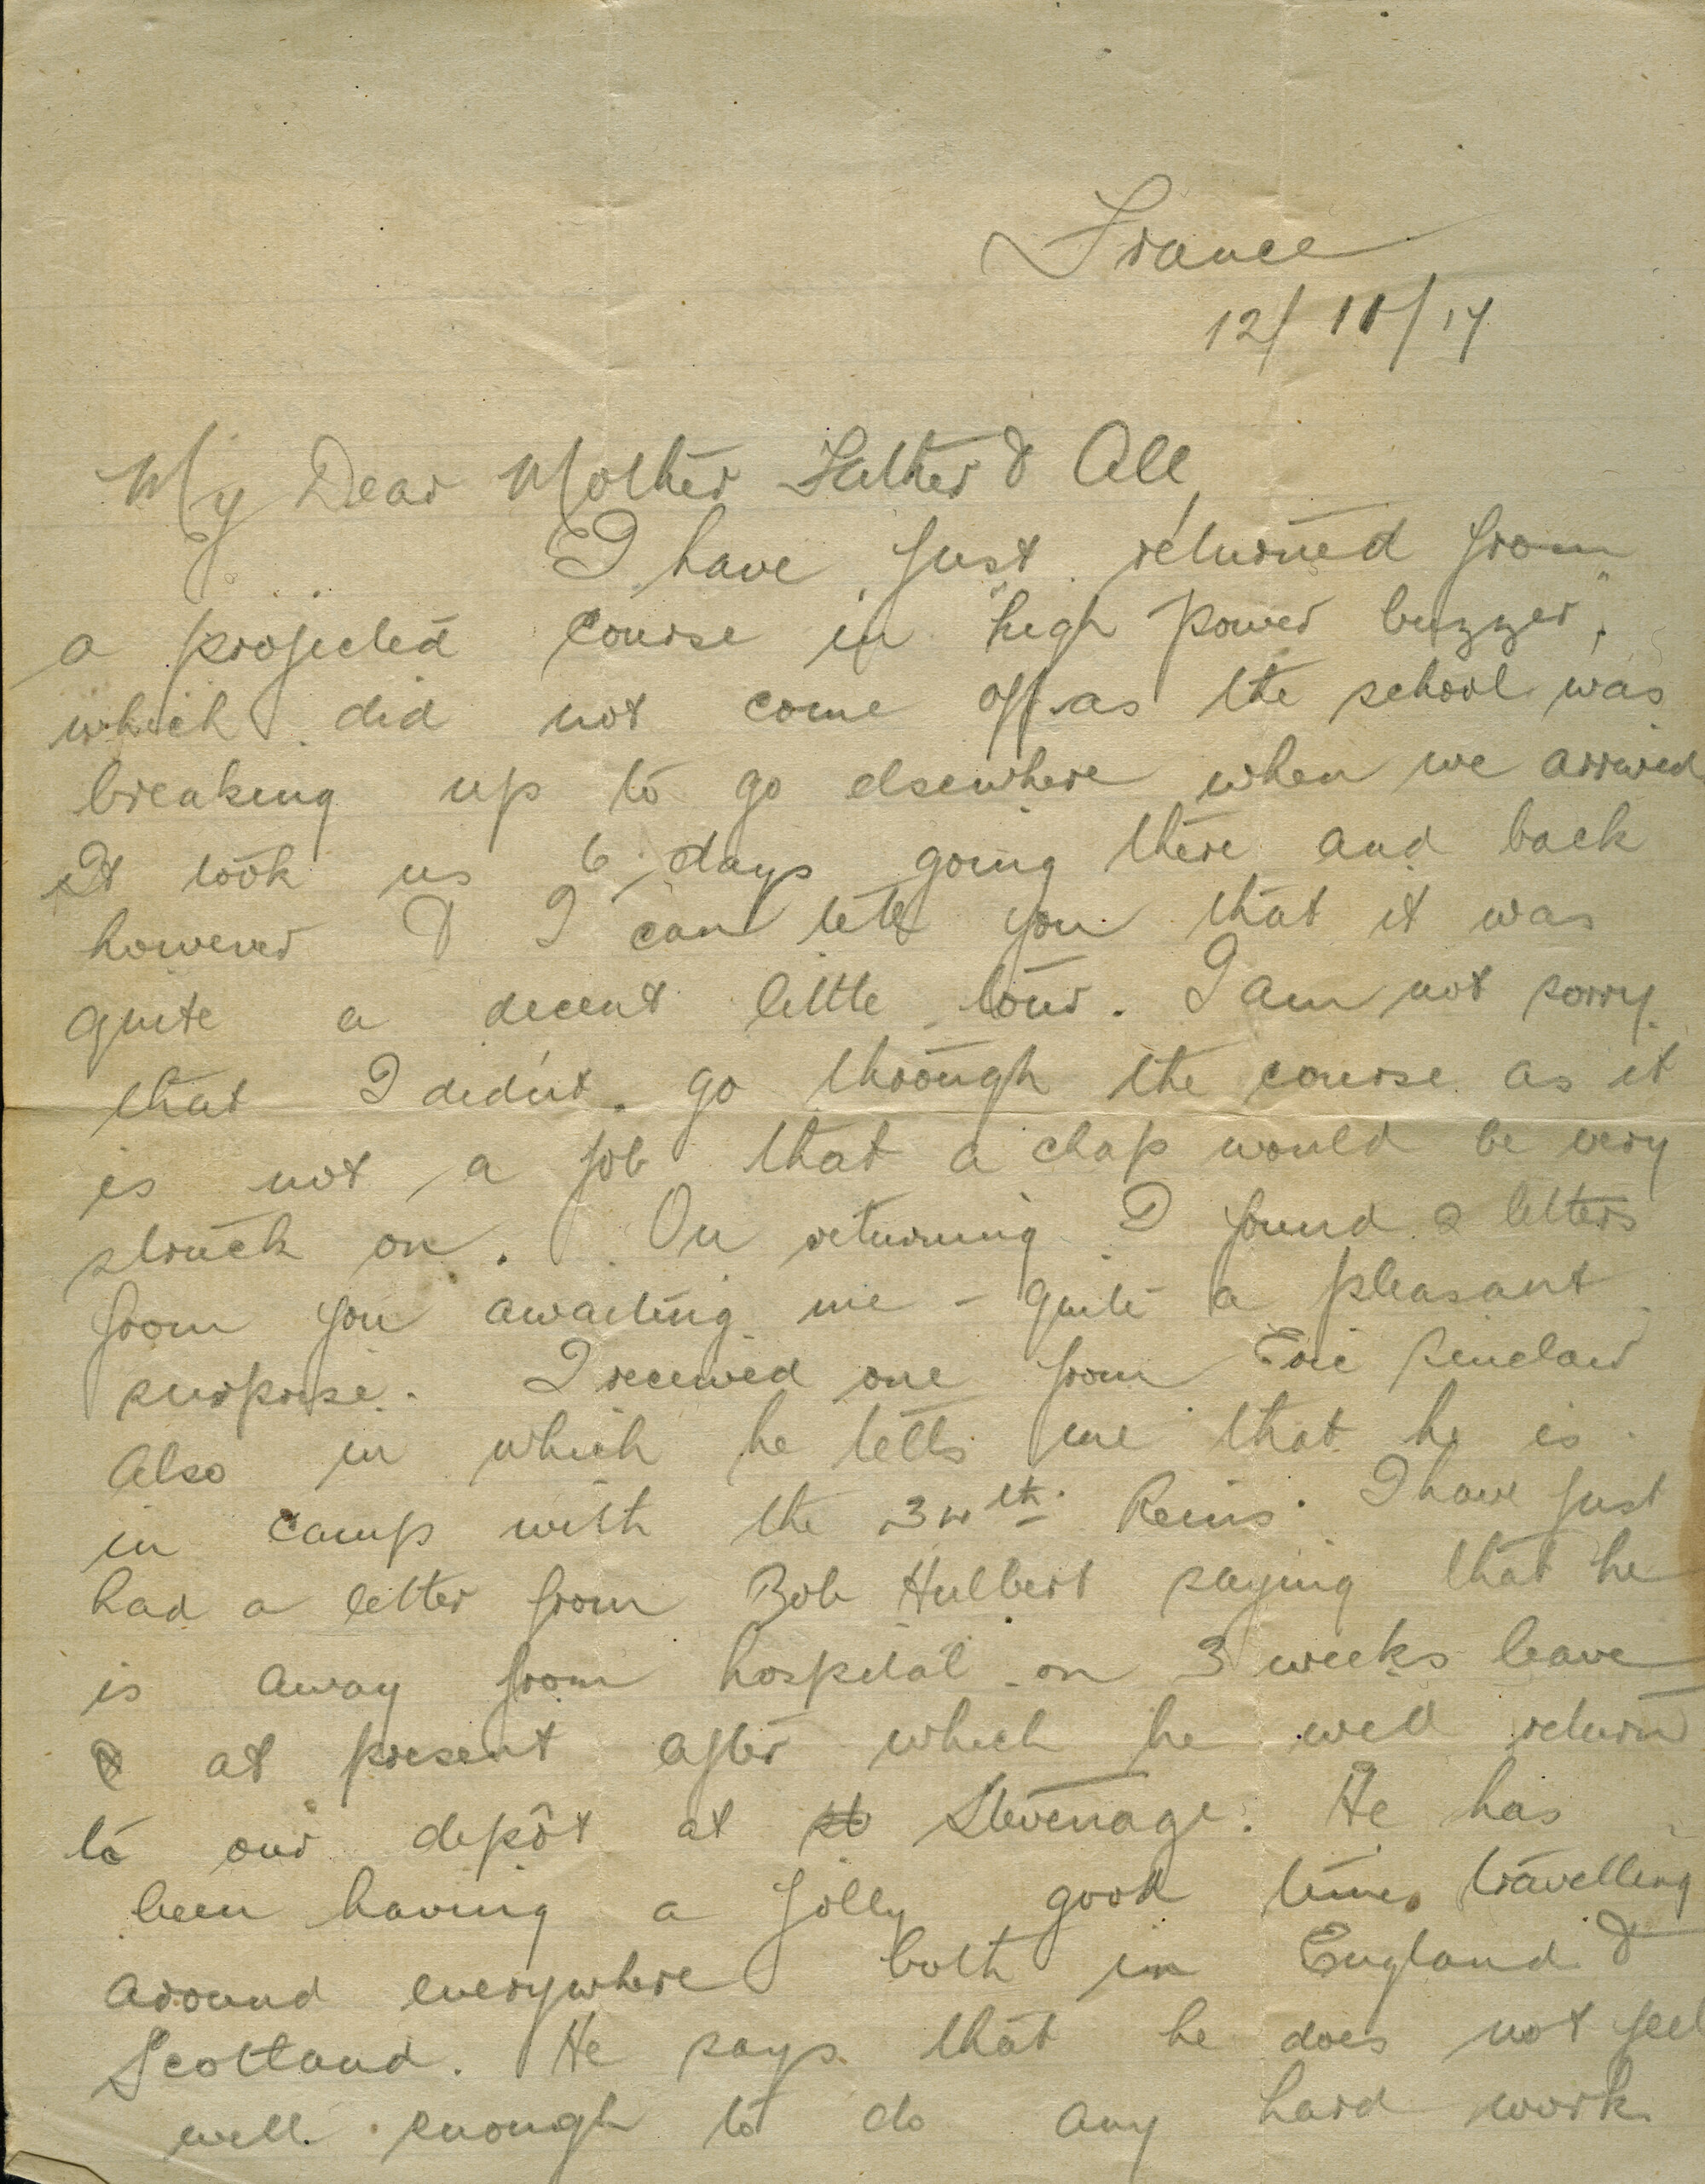 France
12/11/17
My Dear Mother Father & All,
I have just returned from
a projected course in "high power buzzer,"
which did not come off as the school was
breaking up to go elsewhere when we arrived
It took us 6 days going there and back
however & I can tell you that it was
quite a decent little tour. I am not sorry
that I didn't go through the course as it
is not a job that a chap would be very
struck on. On returning I found 2 letters
from you awaiting me - quite a pleasant
surprise. I received one from Eric Sinclair
also in which he tells me that he is
in camp with the 34th Reins. I have just
had a letter from Bob Hulbert saying that he
is away from hospital on 3 weeks leave
at present after which he will return
to our depôt at St Stevenage. He has
been having a jolly good time, travelling
around everywhere both in England &
Scotland. He says that he does not feel
well enough to do any hard work